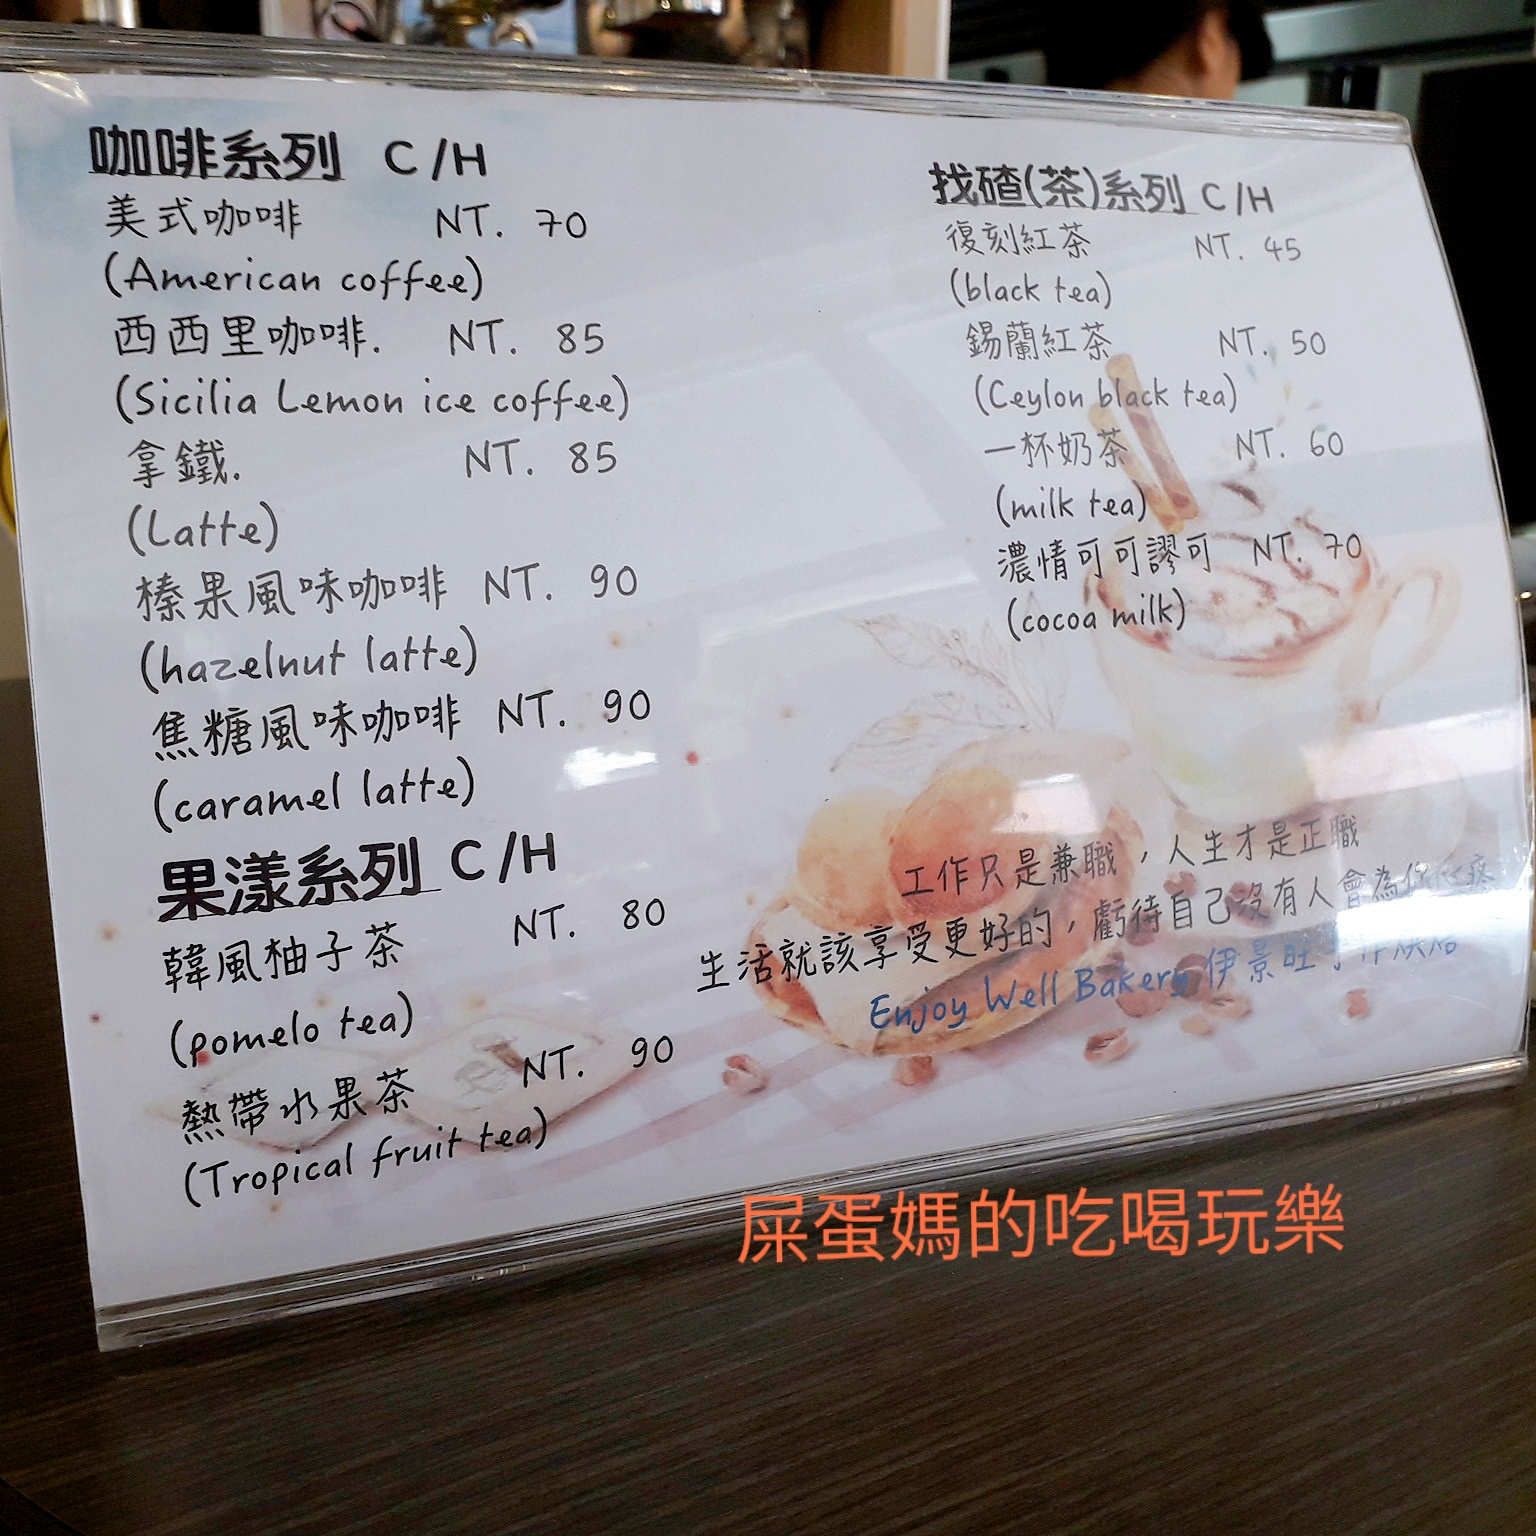 咖啡系列 C/H
美式咖啡 NT. 70
(American coffee)
西西里咖啡. NT. 85
(Sicilia Lemon ice coffee)
拿鐵. NT. 85
(Latte)
榛果風味咖啡 NT. 90
(hazelnut latte)
焦糖風味咖啡 NT. 90
(caramel latte)
果漾系列 C/H
韓風柚子茶 NT. 80
(pomelo tea)
熱帶水果茶 NT. 90
(Tropical fruit tea)
找碴(茶)系列 C/H
復刻紅茶 NT. 45
(black tea)
錫蘭紅茶 NT. 50
(Ceylon black tea)
一杯奶茶 NT. 60
(milk tea)
濃情可可謬可 NT. 70
(cocoa milk)
工作只是兼職，人生才是正職
生活就該享受更好的，虧待自己沒有人會為你心疼
Enjoy Well Bakery 伊景旺手作烘焙
屎蛋媽的吃喝玩樂